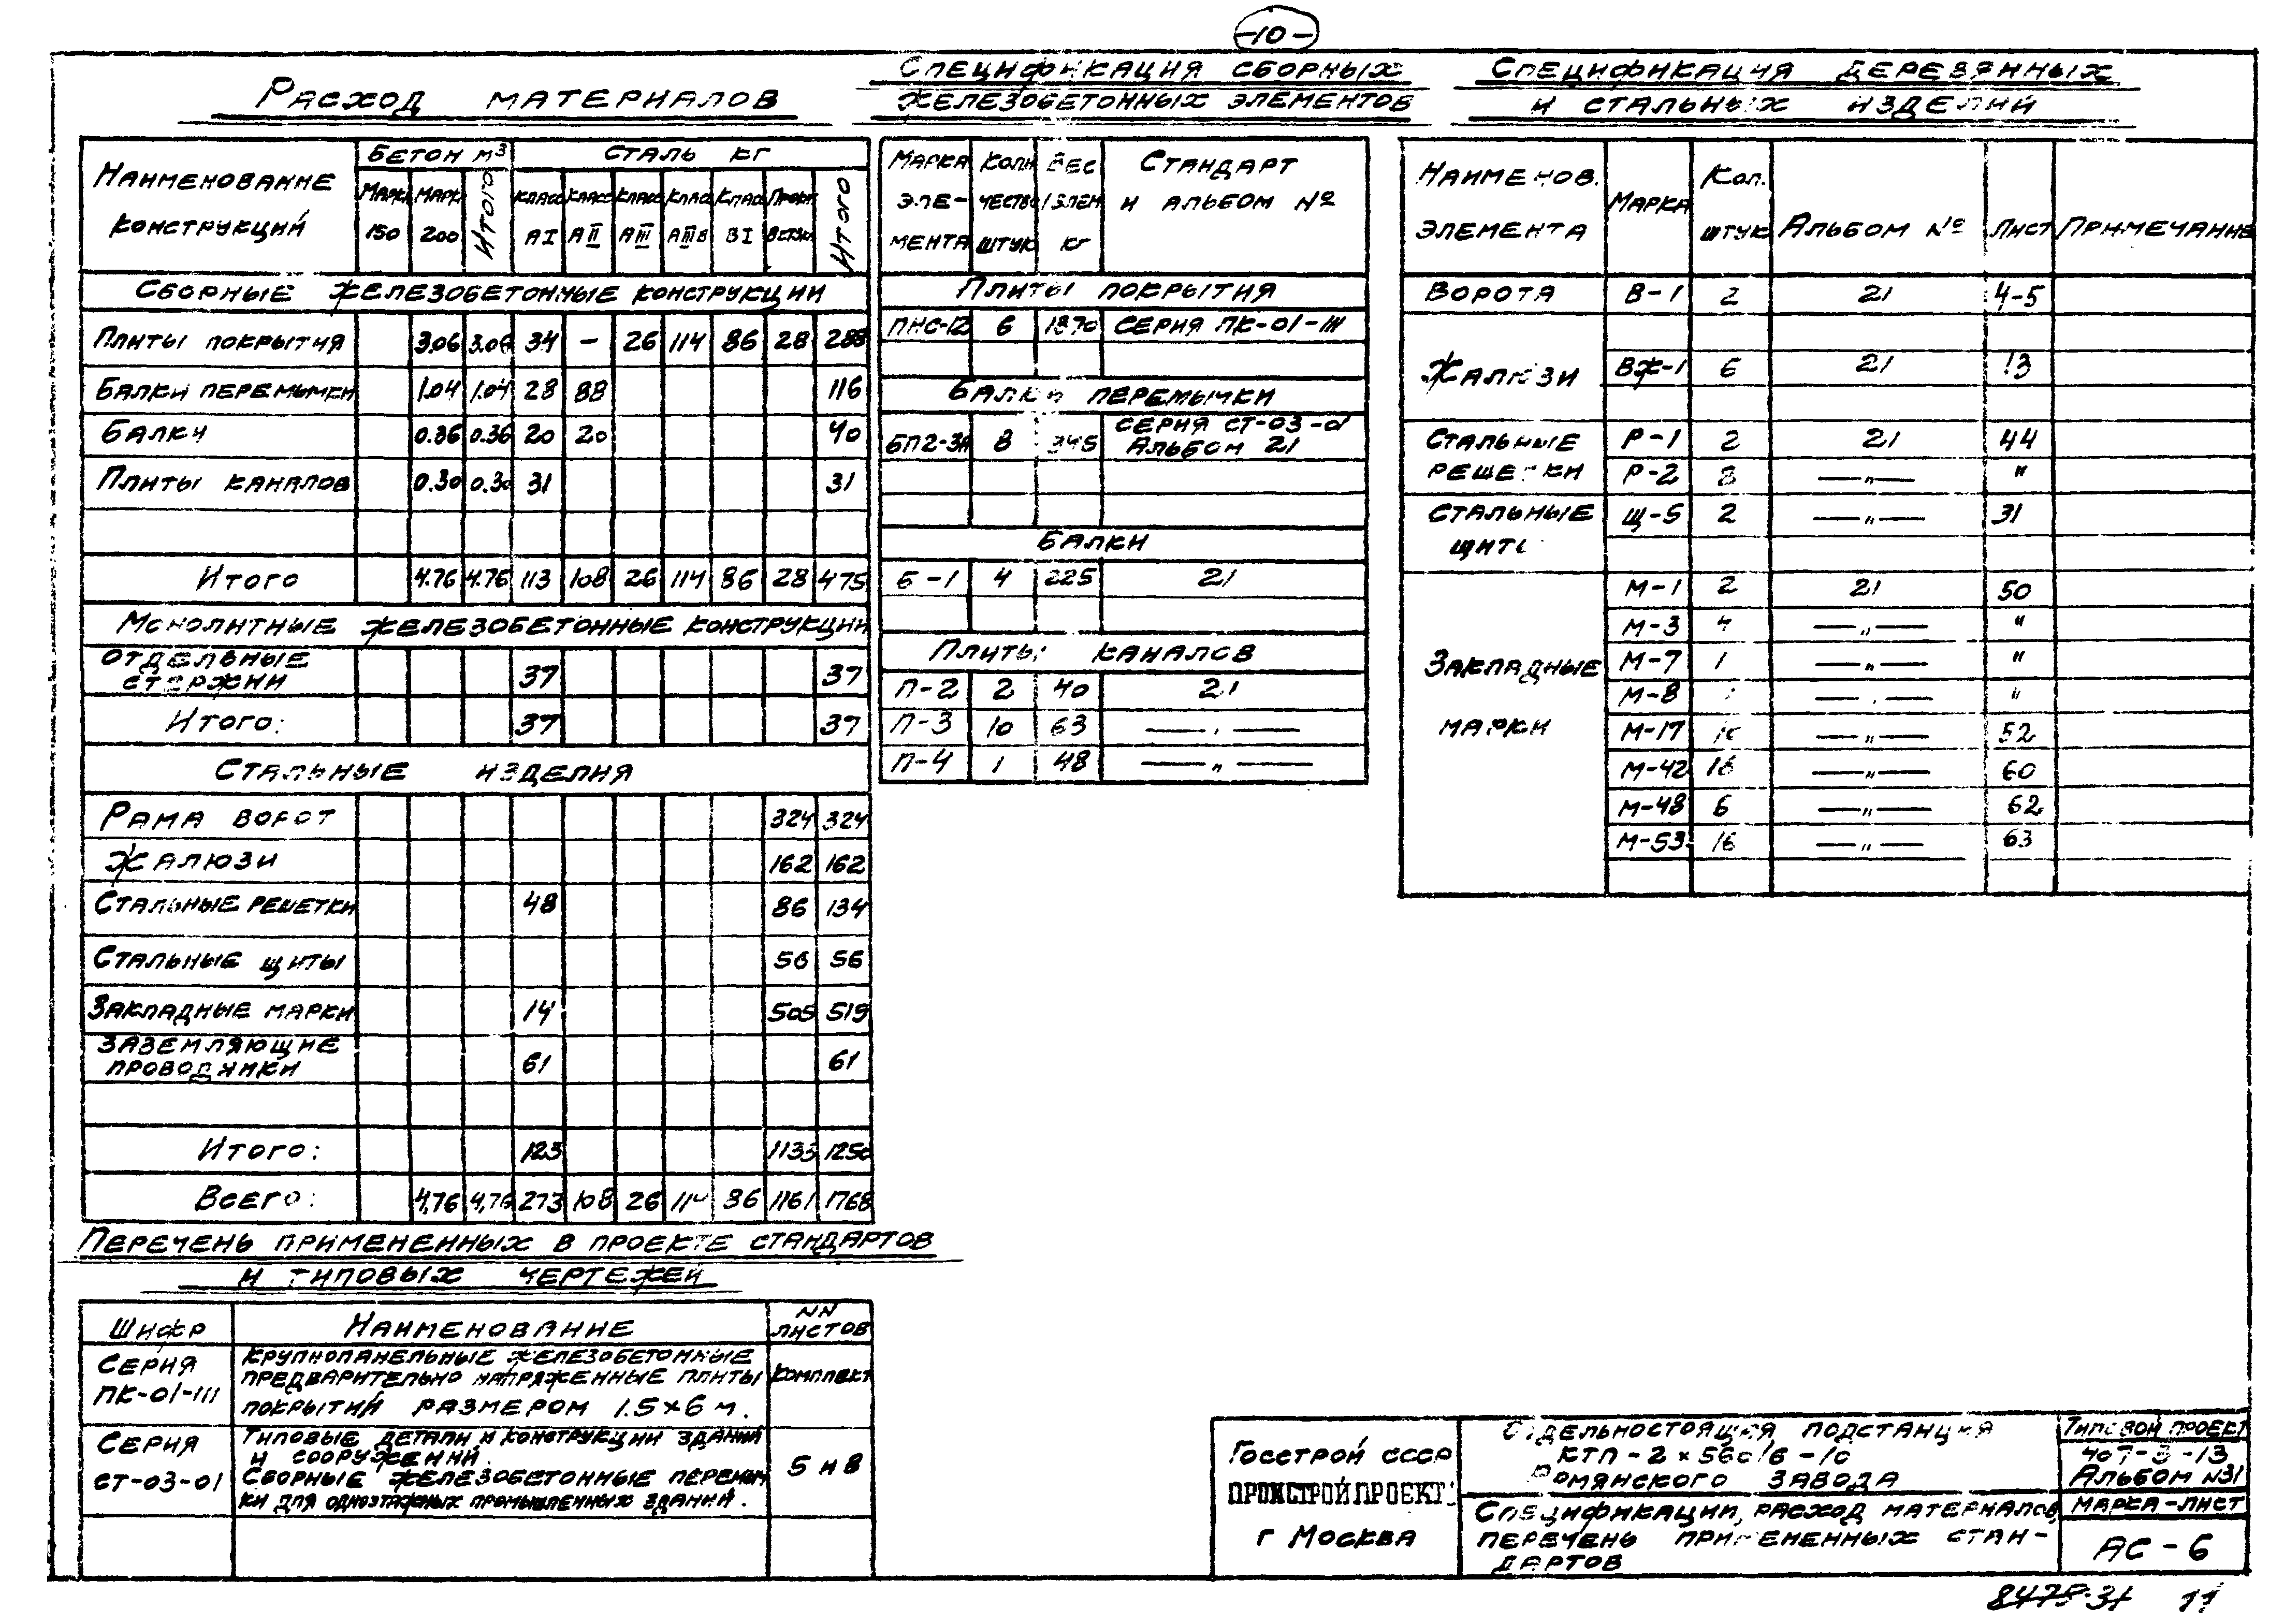 -10-
Расход материалов
Наименование конструкций | Бетон м³ | Сталь кг
Марка 150 | Марка 200 | Итого | Класс АI | Класс АII | Класс АIII | Класс АIIIв | Класс ВI | Прокат Вст3кп | Итого
Сборные железобетонные конструкции
Плиты покрытия | 3.06 | 3.06 | 34 | — | 26 | 114 | 86 | 28 | 288
Балки перемычки | 1.04 | 1.04 | 28 | 88 | 116
Балки | 0.36 | 0.36 | 20 | 20 | 40
Плиты каналов | 0.30 | 0.30 | 31 | 31
Итого | 4.76 | 4.76 | 113 | 108 | 26 | 114 | 86 | 28 | 475
Монолитные железобетонные конструкции
Отдельные стержни | 37 | 37
Итого: | 37 | 37
Стальные изделия
Рама ворот | 324 | 324
Жалюзи | 162 | 162
Стальные решетки | 48 | 86 | 134
Стальные щиты | 56 | 56
Закладные марки | 14 | 505 | 519
Заземляющие проводники | 61 | 61
Итого: | 123 | 1133 | 1256
Всего: | 4,76 | 4,76 | 273 | 108 | 26 | 114 | 86 | 1161 | 1768
Перечень примененных в проекте стандартов
и типовых чертежей
Шифр | Наименование | NN листов
Серия ПК-01-111 | Крупнопанельные железобетонные предварительно напряженные плиты покрытий размером 1.5×6 м. | Комплект
Серия СТ-03-01 | Типовые детали и конструкции зданий и сооружений. Сборные железобетонные перемычки для одноэтажных промышленных зданий. | 5 и 8
Спецификация сборных
железобетонных элементов
Марка элемента | Количество штук | Вес 1 элем кг | Стандарт и альбом №
Плиты покрытия
ПНС-12 | 6 | 1370 | Серия ПК-01-111
Балки перемычки
БП2-3А | 8 | 345 | Серия СТ-03-01 Альбом 21
Балки
Б-1 | 4 | 225 | 21
Плиты каналов
П-2 | 2 | 40 | 21
П-3 | 10 | 63 | — " —
П-4 | 1 | 48 | — " —
Спецификация деревянных
и стальных изделий
Наименов. элемента | Марка | Кол. штук | Альбом № | Лист | Примечание
Ворота | В-1 | 2 | 21 | 4-5
Жалюзи | ВЖ-1 | 6 | 21 | 13
Стальные решетки | Р-1 | 2 | 21 | 44
Р-2 | 8 | — " — | "
Стальные щиты | Щ-5 | 2 | — " — | 31
Закладные марки | М-1 | 2 | 21 | 50
М-3 | 4 | — " — | "
М-7 | 1 | — " — | "
М-8 | — " — | "
М-17 | — " — | 52
М-42 | 16 | — " — | 60
М-48 | 6 | — " — | 62
М-53 | 16 | — " — | 63
Госстрой СССР
Промстройпроект
г Москва
Отдельностоящая подстанция
КТП-2×560/6-10
Ромянского завода
Спецификации, расход материалов,
перечень примененных стан-
дартов
Типовой проект
407-3-13
Альбом N31
Марка-лист
АС-6
8475-31 11